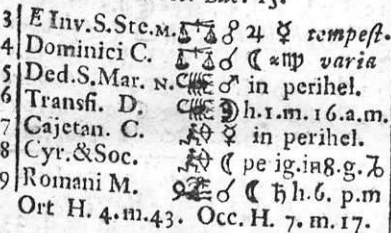 3 E Inv.S.Ste.M. ♎ ☍ ♃ ☿ tempest.
4 Dominici C. ♎ ☌ ☾ varia
5 Ded.S.Mar. N. ♏ ♂ in perihel.
6 Transfi. D. ♏ h.1.m.16.a.m.
7 Cajetan. C. ♐ ☿ in perihel.
8 Cyr.&Soc. ♐ ☾ perig.in8.g.♑
9 Romani M. ☌ ☾ ♄ h.6. p.m
Ort H. 4.m.43. Occ. H. 7. m. 17.